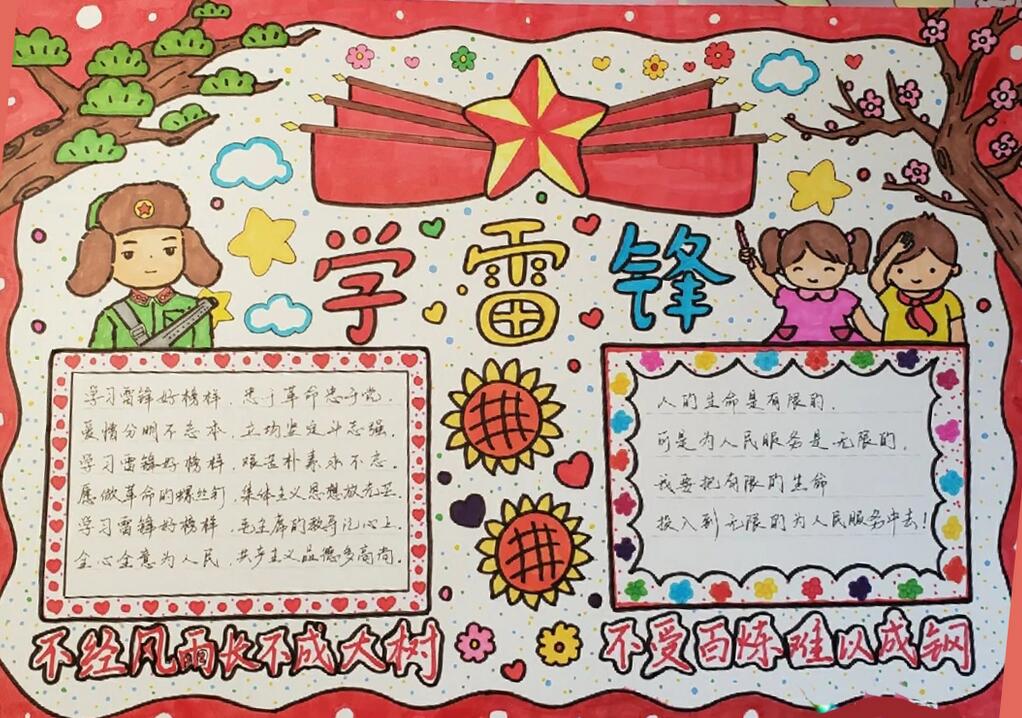 学雷锋
学习雷锋好榜样，忠于革命忠于党。
爱憎分明不忘本，立场坚定斗志强。
学习雷锋好榜样，艰苦朴素永不忘。
愿做革命的螺丝钉，集体主义思想放光芒。
学习雷锋好榜样，毛主席的教导记心上。
全心全意为人民，共产主义品德多高尚。
人的生命是有限的，
可是为人民服务是无限的，
我要把有限的生命
投入到无限的为人民服务中去！
不经风雨长不成大树
不受百炼难以成钢